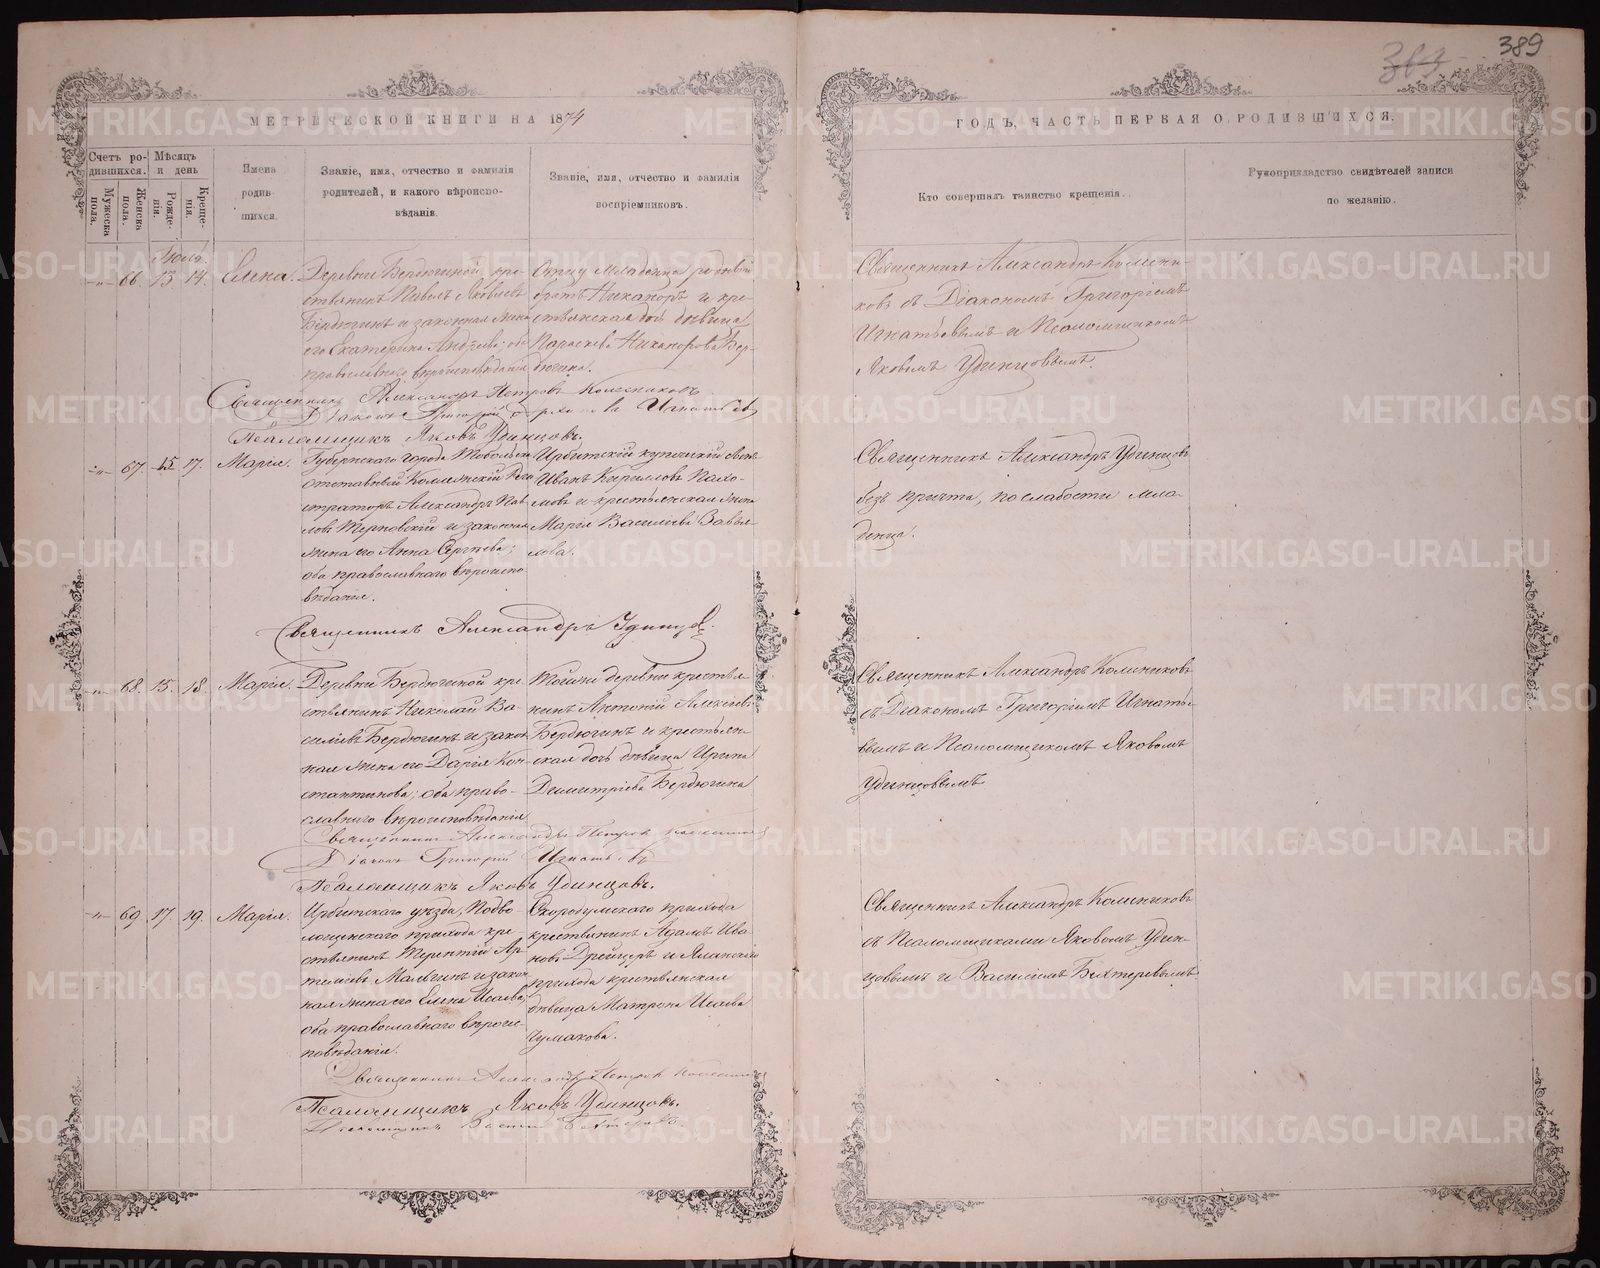 389
МЕТРИЧЕСКОЙ КНИГИ НА 1874
ГОДЪ, ЧАСТЬ ПЕРВАЯ О РОДИВШИХСЯ.
Счетъ родившихся.
Мужеска пола.
Женска пола.
Мѣсяцъ и день
Рожденія.
Крещенія.
Имена родившихся.
Званіе, имя, отчество и фамилія родителей, и какого вѣроисповѣданія.
Званіе, имя, отчество и фамилія воспріемниковъ.
Кто совершалъ таинство крещенія.
Рукоприкладство свидѣтелей записи по желанію.
66. 13. 14. Елена.
Деревни Бердюгиной кре-
стьянинъ Яковлевъ
Бердюгинъ и законная жена
его Екатерина Андреева; оба
православнаго вѣроисповѣданія
Отецу младенца родный
братъ Никаноръ и кре-
стьянская дочь дѣвица
Параскева Никанорова Бер-
дюгина.
Священникъ Александръ Колесни-
ковъ съ Діакономъ Григоріемъ
Игнатьевымъ и Псаломщикомъ
Яковымъ Удинцовымъ.
Священникъ Александръ Петровъ Колесниковъ
Діаконъ Григорій Игнатьевъ
Псаломщикъ Яковъ Удинцовъ.
67. 15. 17. Марія.
Губернскаго города Тобольска
отставный Коллежскій Реги
страторъ Александръ Пав
ловъ Терновскій и законная
жена его Анна Сергѣева;
оба православнаго вѣроиспо
вѣданія.
Ирбитскій купеческій сынъ
Иванъ Кирилловъ Пахо-
мовъ и крестьянская жена
Марія Васильева Завья-
лова.
Священникъ Александръ Удинцовъ
безъ причта, по слабости мла-
денца.
Священникъ Александръ Удинцовъ.
68. 15. 18. Марія.
Деревни Бердюгиной кре
стьянинъ Николай Ва-
сильевъ Бердюгинъ и закон
ная жена его Дарія Кон-
стантинова; оба право-
славнаго вѣроисповѣданія
Той же деревни крестья
нинъ Антоній Алексѣевъ
Бердюгинъ и крестьян-
ская дочь дѣвица Ирина
Димитріева Бердюгина
Священникъ Александръ Колесниковъ
съ Діакономъ Григоріемъ Игнать-
евымъ и Псаломщикомъ Яковомъ
Удинцовымъ
Священникъ Александръ Петровъ Колесниковъ
Діаконъ Григорій Игнатьевъ
Псаломщикъ Яковъ Удинцовъ.
69. 17. 19. Марія.
Ирбитскаго уѣзда, Подво-
лошенскаго прихода кре-
стьянинъ Терентій Ар-
теміевъ Малыгинъ и закон
ная жена его Елена Исаева;
оба православнаго вѣроис-
повѣданія.
Скородумскаго прихода
крестьянинъ Адамъ Ива-
новъ и Яланскаго
прихода крестьянская
дѣвица Матрона Исаева
Чумакова.
Священникъ Александръ Колесниковъ
съ Псаломщиками Яковомъ Удин-
цовымъ и Василіемъ Бехтеревымъ
Священникъ Александръ Петровъ Колесниковъ
Псаломщикъ Яковъ Удинцовъ.
Псаломщикъ Василій Бехтеревъ.
METRIKI.GASO-URAL.RU